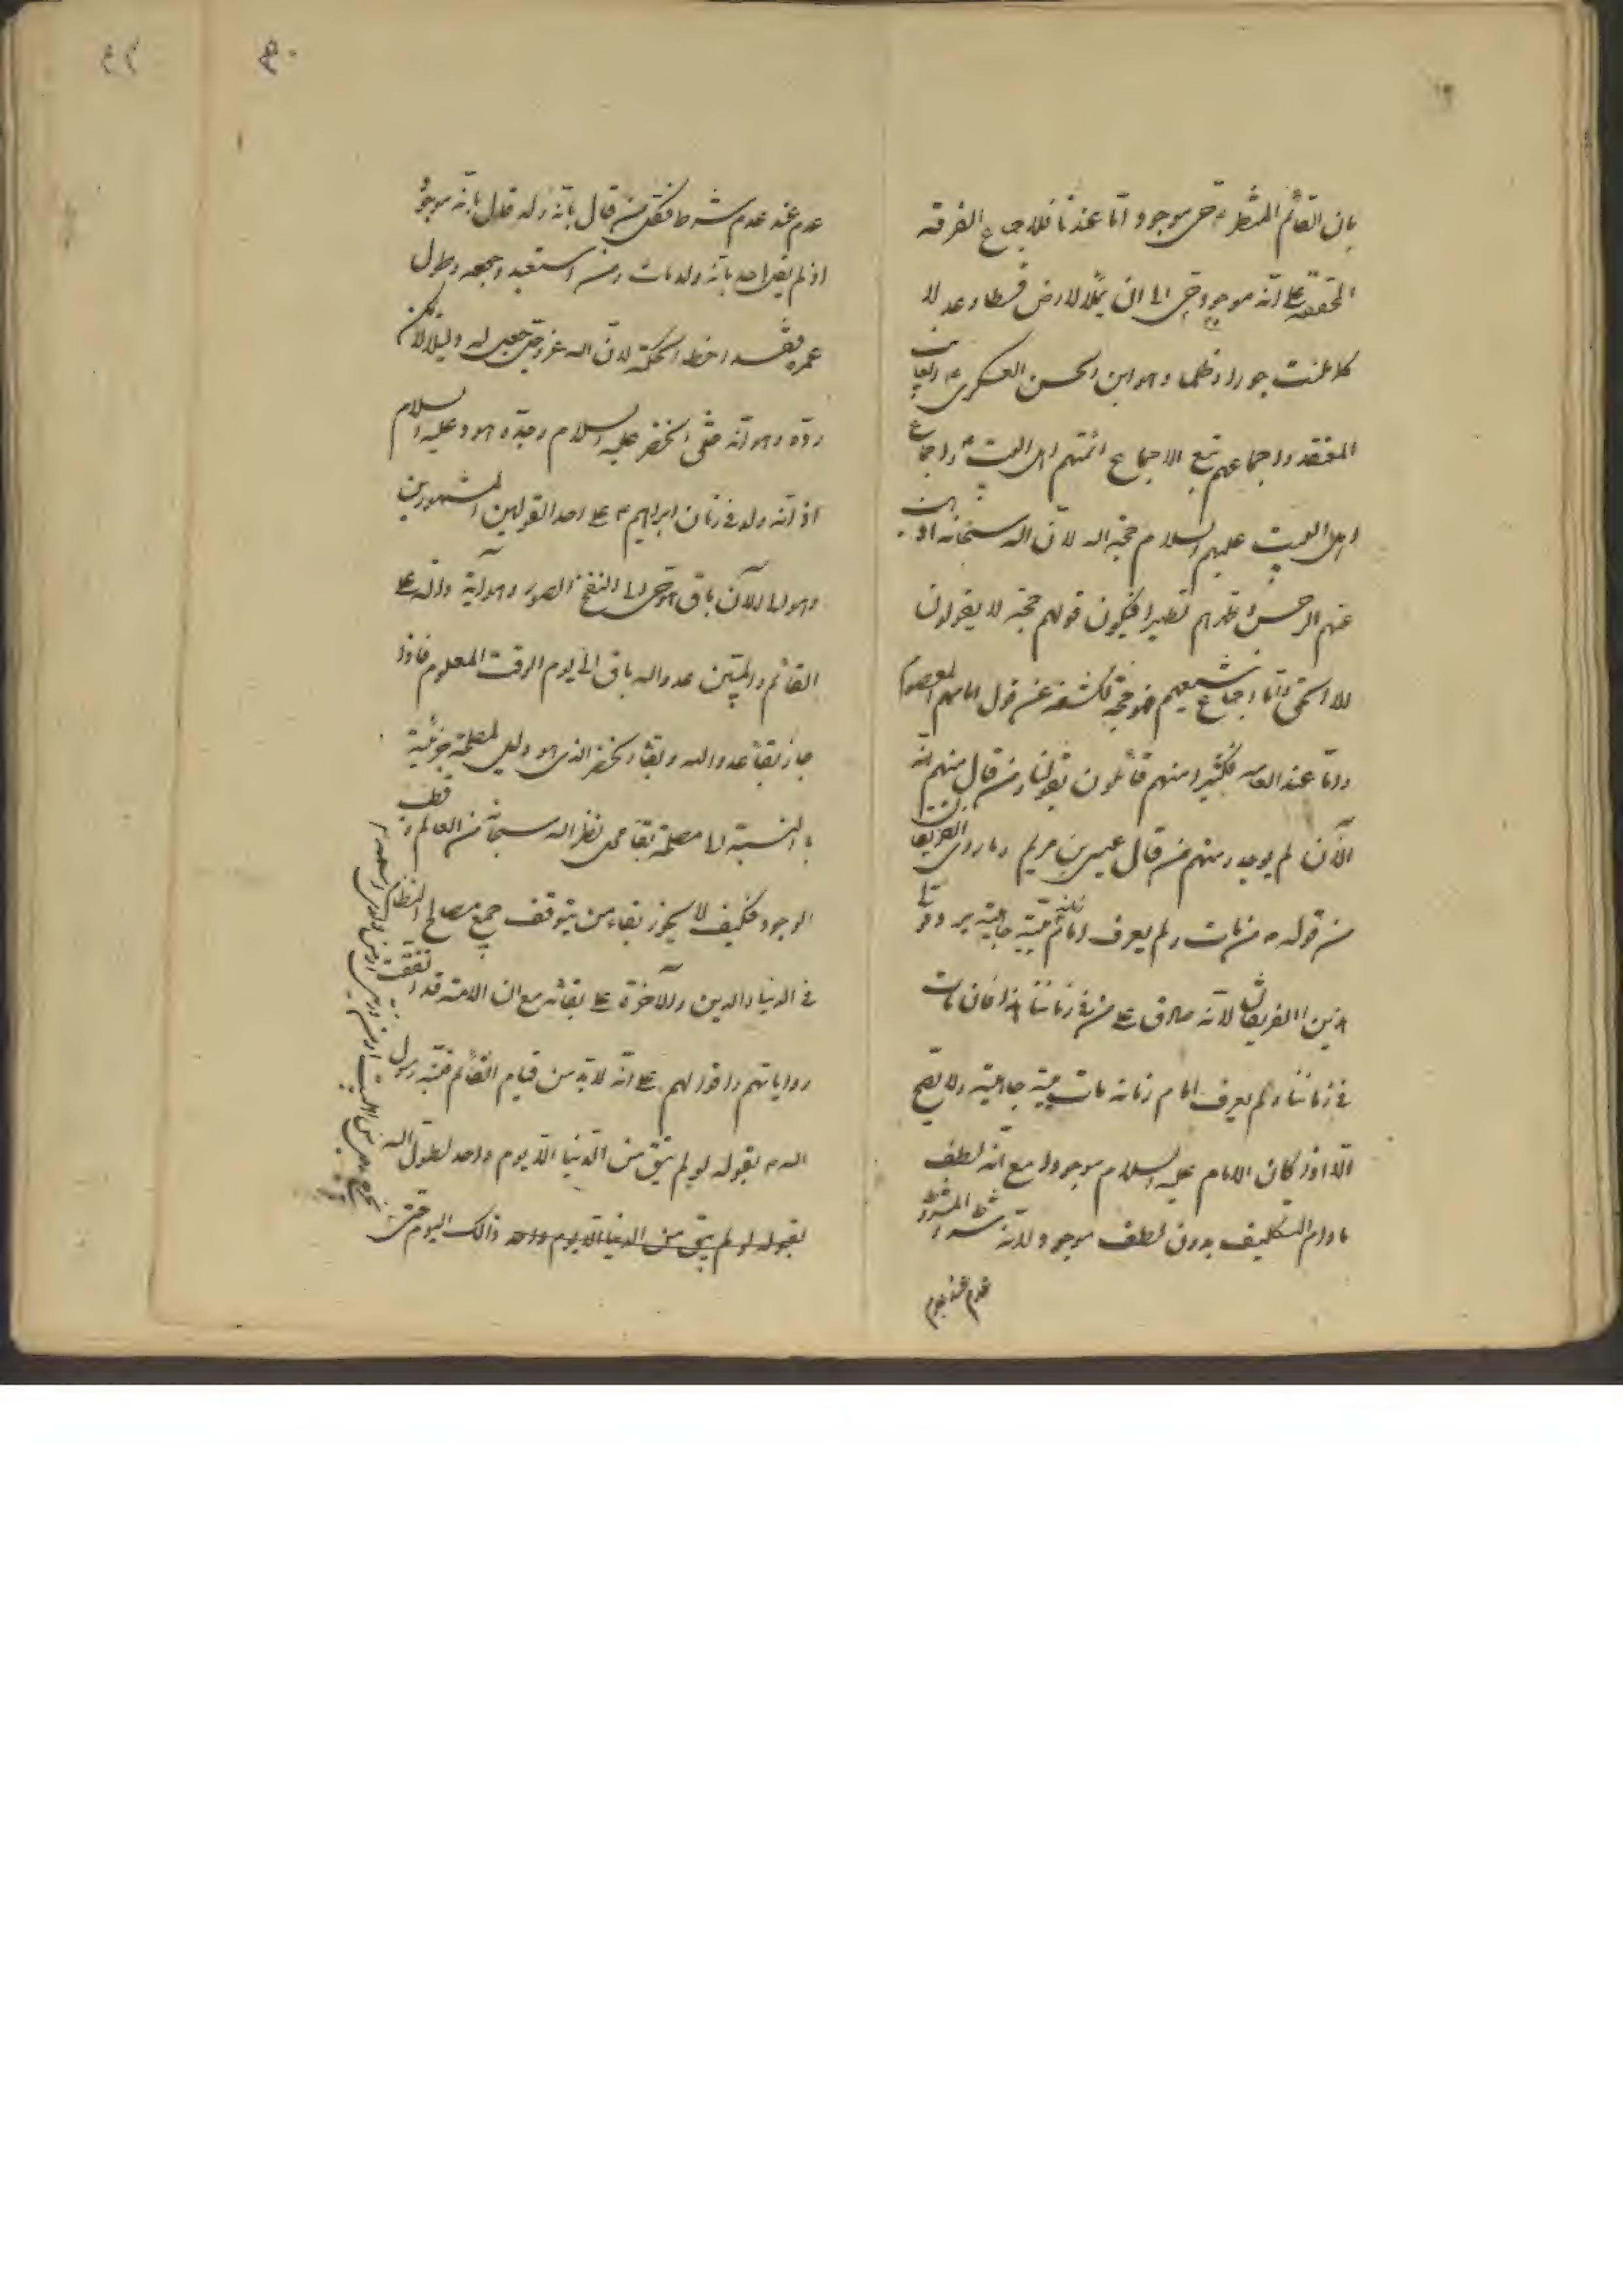 بان القائم المنتظر ع حي موجود اما عندنا فلاجماع الفرقة
المحققة على انه موجود حي الى ان يملأ الارض قسطا وعدلا
كما ملئت جورا وظلما وهو ابن الحسن العسكري ع الغايب
المفتقد واجماعهم تبع الاجماع ائمتهم اهل البيت ع واجماع
اهل البيت عليهم السلام حجة لان الله سبحانه اذهب
عنهم الرجس وطهرهم تطهيرا فيكون قولهم حجة لا يقولون
الا الحق واما اجماع شيعتهم فهو حجة لكشفه عن قول امامهم المعصوم
واما عند العامه فكثيرا منهم قائلون بقولنا ومن قال منهم انه
الآن لم يوجد ومنهم من قال عيسى بن مريم وما روى الفريقان
من قوله ص من مات ولم يعرف امام زمانه ميتة جاهلية يرد
الفريقان لانه صادق على من في زماننا هذا فان مات
في زماننا ولم يعرف امام زمانه مات ميتة جاهلية ولا يصح
الا اذا كان الامام عليه السلام موجودا مع انه لطف
مادام التكليف بدون لطف موجود لانه شرط المشروط
عدم عند عدم
عدم عند عدم شرطه فكل من قال بانه ولد قال بانه موجود
اذ لم يقل احد بانه ولد مات ومن استبعد وجوده وطول
عمره فقد اخطا الحكمة لان الله عز وجل جعل له دليلا لا يمكن
رده وهو انه خلق الخضر عليه السلام وجده هود عليه السلام
اذ انه ولد في زمان ابراهيم ع على احد القولين المشهورين
وهو الى الآن باق حي الى النفخ الصور وهو آية دالة على
القائم وابليس عدو الله باق الى يوم الوقت المعلوم فاذا
جاز بقاء عدو الله وبقاء الخضر الذي هو لمصلحة جزئية
بالنسبة الى مصلحة بقاء محل نظر الله سبحانه من العالم وقطب
الوجود فكيف لا يجوز بقاء من يتوقف جميع مصالح النظام
في الدنيا والدين والآخرة على بقائه مع ان الامة قد اتفقت
رواياتهم واقوالهم على انه لابد من قيام القائم رسول
الله ص بقوله لو لم يبق من الدنيا الا يوم واحد لطول الله
بقوله لو لم يبق من الدنيا الا يوم واحد ذالك اليوم حتى